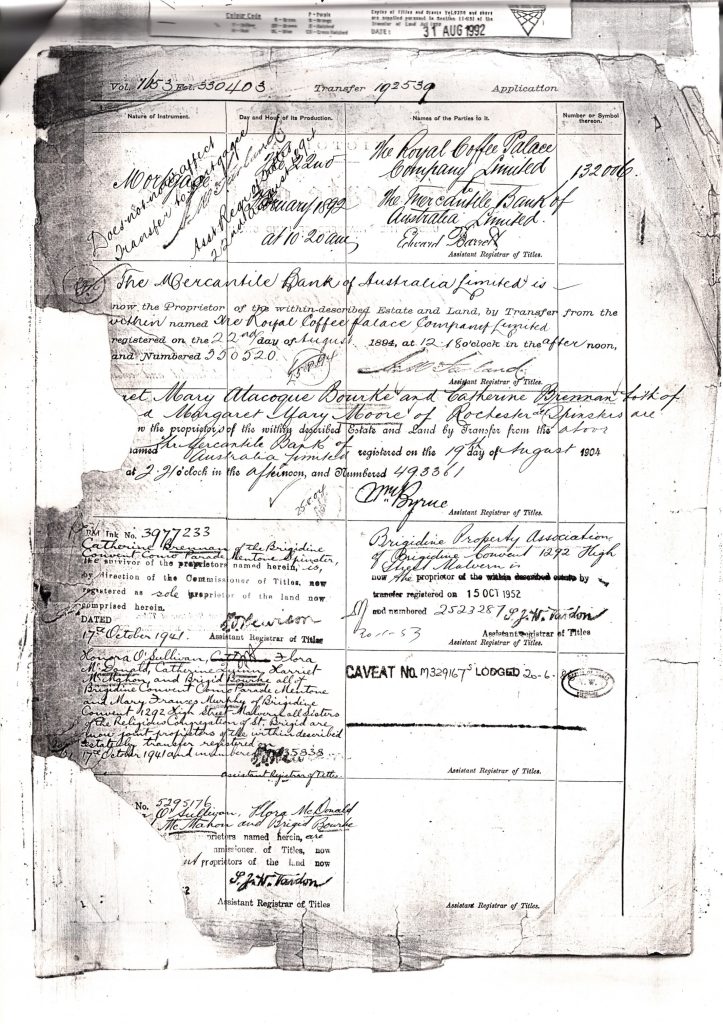 Colour Code
Copies of Titles and
are supplied pursuant to Section
DATE: 31 AUG 1992
Vol. 1153 Fol. 330403 Transfer 192539 Application
Nature of Instrument. Day and Hour of its Production. Names of the Parties to it. Number or Symbol thereon.
Does not affect
Transfer to Mortgagee
Mortgage
22nd
1892
at 10.20 am
The Royal Coffee Palace
Company Limited
to
The Mercantile Bank of
Australia Limited.
132006
Edward
Assistant Registrar of Titles.
The Mercantile Bank of Australia Limited is
now the Proprietor of the within-described Estate and Land, by Transfer from the
within named The Royal Coffee Palace Company Limited
registered on the 22nd day of August 1894, at 12.18 o'clock in the after noon,
and Numbered 350520.
Assistant Registrar of Titles.
Mary Alacoque Bourke and Catherine Brennan both of
Margaret Mary Moore of Rochester Spinsters are
the proprietors of the within described Estate and Land by Transfer from the above
named The Mercantile Bank of
Australia Limited registered on the 19th day of August 1904
at 2.21 o'clock in the afternoon, and Numbered 493361
Byrne
Assistant Registrar of Titles.
No. 3977233
Catherine Brennan of the Brigidine
Convent Como Parade Mentone Spinster,
the survivor of the proprietors named herein, is,
by direction of the Commissioner of Titles, now
registered as sole proprietor of the land now
comprised herein.
DATED
17th October 1941. Assistant Registrar of Titles
Brigidine Property Association
of Brigidine Convent 1292 High
Street Malvern is
now the proprietor of the within described estate by
transfer registered on 15 OCT 1952
and numbered 2523287 S.J.W. Vardon
Assistant Registrar of Titles
Assistant Registrar of Titles.
Honora O'Sullivan, Flora
McDonald, Catherine Harriet
McMahon, and Brigid Bourke all of
Brigidine Convent Como Parade Mentone
and Mary Frances Murphy of Brigidine
Convent 1292 High Street Malvern all Sisters
of the Religious Congregation of St. Brigid are
now joint proprietors of the within described
estate by transfer registered on
17th October 1941 and numbered
Assistant Registrar of Titles.
CAVEAT NO. M329167S LODGED 20-6-
Assistant Registrar of Titles.
No. 5295176
O'Sullivan, Flora McDonald
McMahon and Brigid Bourke
named herein, are
of Titles, now
proprietors of the land now
S.J.W. Vardon
Assistant Registrar of Titles
Assistant Registrar of Titles.